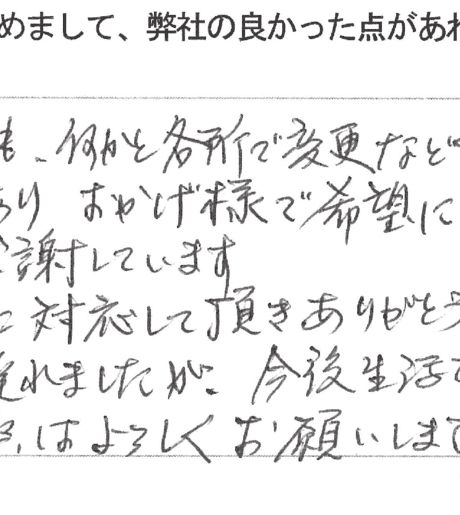 めまして、弊社の良かった点があれ
も、何かと各所で変更など
あり おかげ様で希望に
感謝しています
に対応して頂きありがとう
れましたが、今後生活
はよろしくお願いします